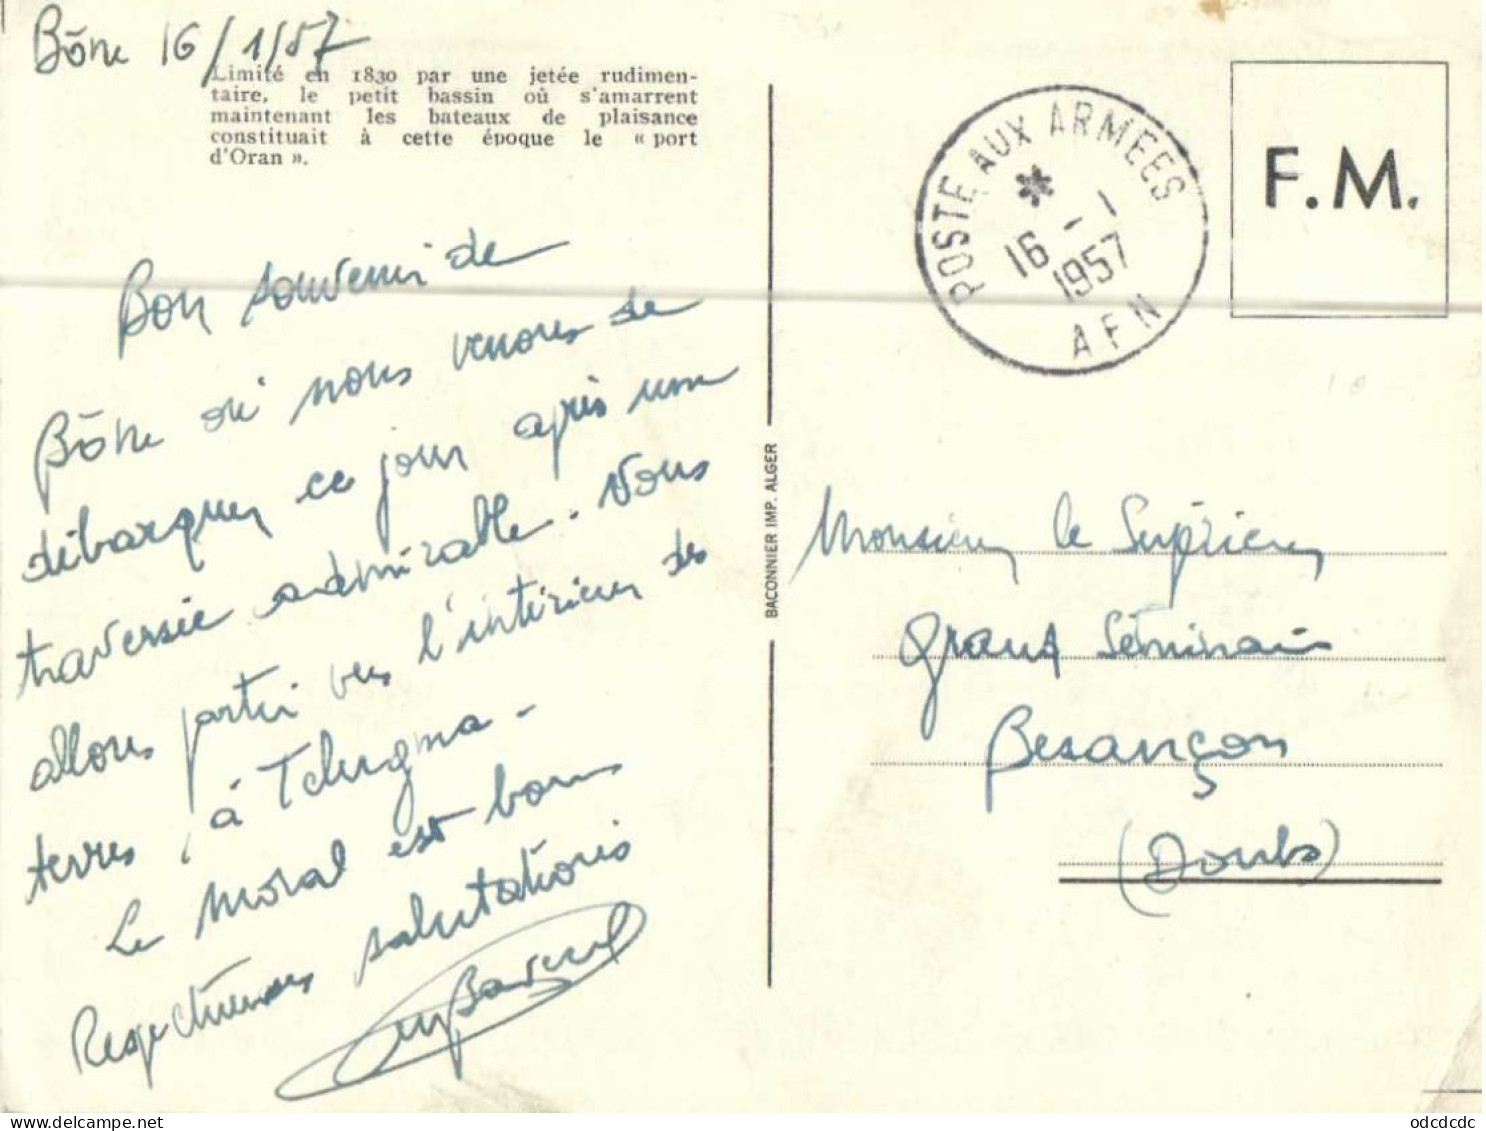 Bône 16/1/57
Limité en 1830 par une jetée rudimen-
taire, le petit bassin où s'amarrent
maintenant les bateaux de plaisance
constituait à cette époque le « port
d'Oran ».
Bon souvenir de
Bône où nous venons de
débarquer ce jour après une
traversée admirable. Nous
allons partir vers l'intérieur des
terres, à Telergma.
Le moral est bon
Respectueuses salutations
POSTE AUX ARMEES
*
16 - 1
1957
AFN
F.M.
BACONNIER IMP. ALGER
Monsieur le Supérieur
Grand Séminaire
Besançon
(Doubs)
odcdcdc